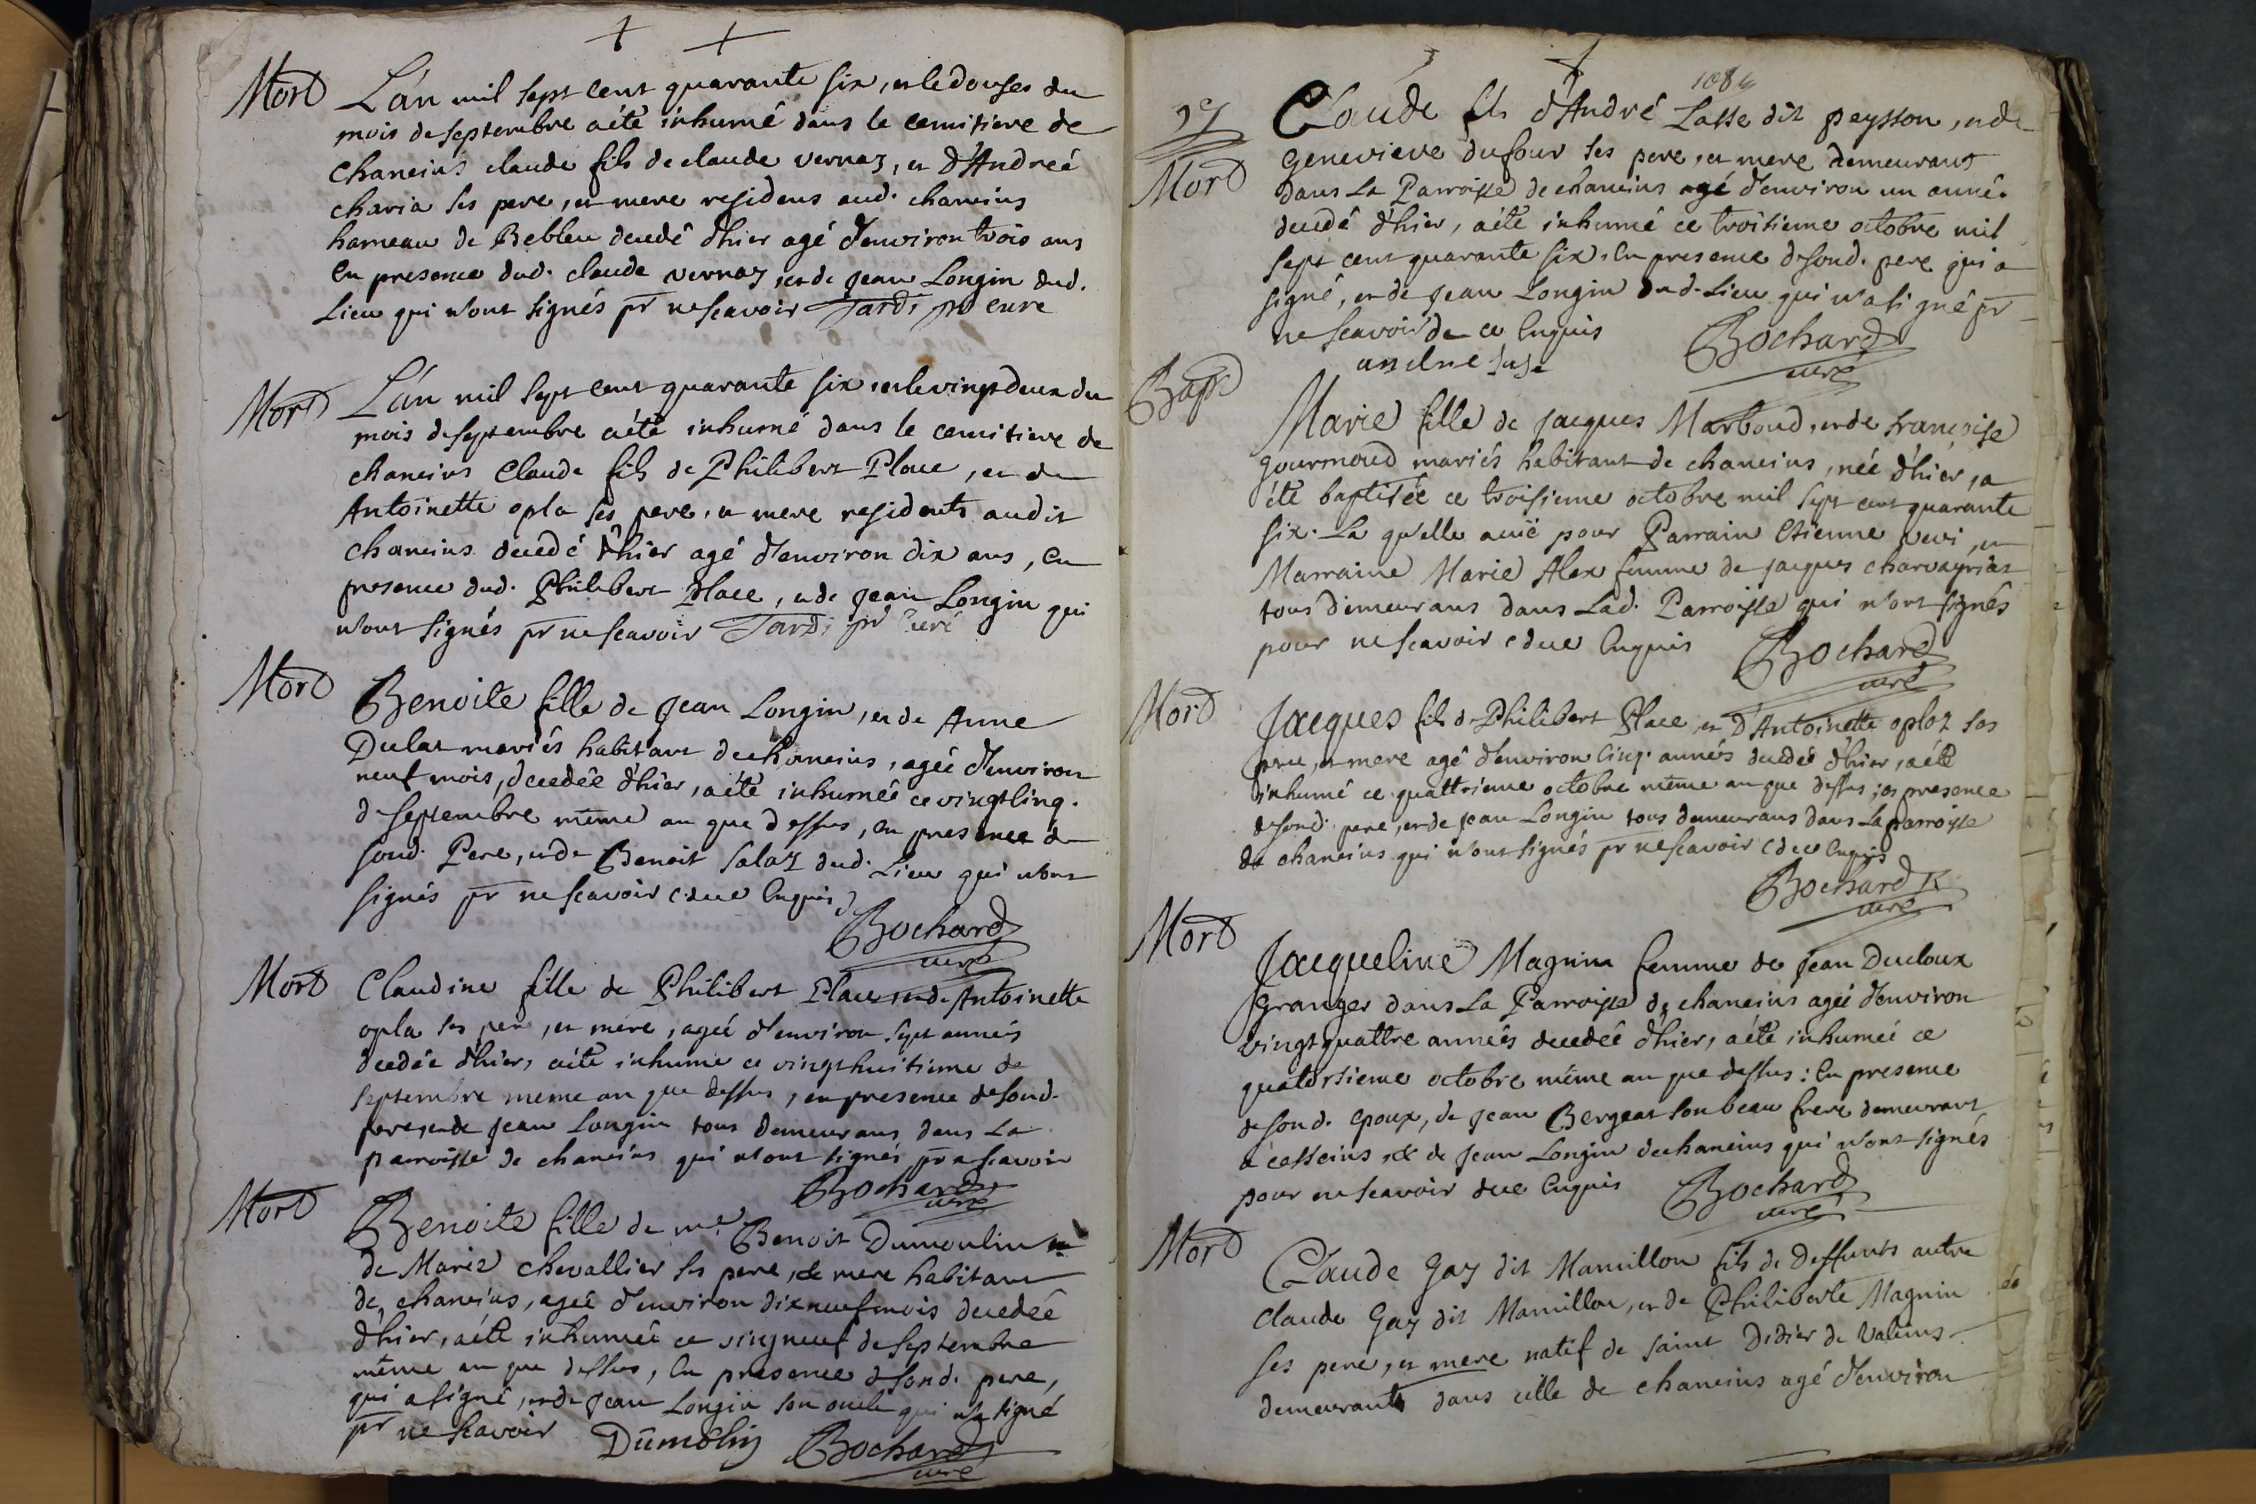 Mort L'an mil sept cent quarante six, et le douses du
mois de septembre a été inhumé dans le cemitiere de
chaneins claude fils de claude vernaz, et d'Andreé
charia ses pere, et mere residens aud. chaneins
hameau de Bebleu decedé d'hier agé d'environ trois ans
en presence dud. claude vernaz, et de jean Longin dud.
Lieu qui n'ont signés pr ne scavoir Tardi pro curé
Mort L'an mil sept cent quarante six, et le vingt deux du
mois de septembre a été inhumé dans le cemitiere de
chaneins Claude fils de Philibert Place, et de
Antoinette opla ses pere, et mere residents audit
chaneins decedé d'hier agé d'environ dix ans, en
presence dud. Philibert Place, et de jean Longin qui
n'ont signés pr ne scavoir Tardi pr curé
Mort Benoite fille de jean Longin, et de Anne
Dulat mariés habitant de chaneins, ageé d'environ
neuf mois, decedée d'hier, a été inhumée ce vingt cinq.
de septembre même an que dessus, en presence de
soud. Pere, et de Benoit Salaz dud. Lieu qui n'ont
signés pr ne scavoir de ce enquis
Bochard
curé
Mort Claudine fille de Philibert Place, et de Antoinette
opla ses pere, et mere, ageé d'environ sept années
decedée d'hier, a été inhumé ce vingt huitieme de
septembre meme an que dessus, en presence de soud.
pere, et de jean Longin tous demeurans dans La
parroisse de chaneins qui n'ont signés pr n scavoir
Bochard
curé
Mort Benoite fille de me. Benoit Dumoulin et
de Marie chevallier ses pere, & mere habitant
de chaneins, ageé d'environ dix neuf mois decedeé
d'hier, a été inhumeé ce vingneuf de septembre
même an que dessus, en presence de soud. pere,
qui a signé, et de jean Longin son oncle qui n'a signé
pr ne scavoir Dumolin Bochard
curé
1084
Mort Claude fils d'André Lasse dit peysson, et de
Genevieve dufour ses pere, et mere demeurant
dans La Parroisse de chaneins agé d'environ un année.
decedé d'hier, a été inhumé ce troisieme octobre mil
sept cent quarante six. en presence de soud. pere qui a
signé, et de jean Longin dud. Lieu qui n'a signé pr
ne scavoir de ce enquis Bochard
curé
Bapt
Marie fille de jacques Marboud, et de françoise
gourmoud mariés habitant de chaneins, née d'hier, a
été baptisée ce troisieme octobre mil sept cent quarante
six. La qu'elle a eüe pour Parrain Etienne vevi, et
Marraine Marie Alex femme de jacques charvayrias
tous demeurans dans Lad. Parroisse qui n'ont signés
pour ne scavoir de ce enquis Bochard
curé
Mort Jacques fils de Philibert Place, et D'Antoinette oploz ses
pere, et mere agé d'environ cinq. années decedée d'hier, a été
inhumé ce quattrieme octobre même an que dessus, en presence
de soud. pere, et de jean Longin tous demeurans dans La parroisse
de chaneins qui n'ont signés pr ne scavoir de ce enquis
Bochard
curé
Mort Jacqueline Magnin femme de jean Ducloux
granger dans La Parroisse de chaneins ageé d'environ
vingt quattre années decedeé d'hier, a été inhumeé ce
quatorsieme octobre même an que dessus: En presence
de soud. epoux, de jean Bergeat son beau frere demeurant
a cesseins, & de jean Longin de chaneins qui n'ont signés
pour ne scavoir de ce enquis Bochard
curé
Mort Claude gay dit Mamillon fils de deffunts autre
claude gay dit Mamillon, et de Philiberte Magnin
ses pere, et mere natif de saint Didier de Valeins
demeurant dans celle de chaneins agé d'environ